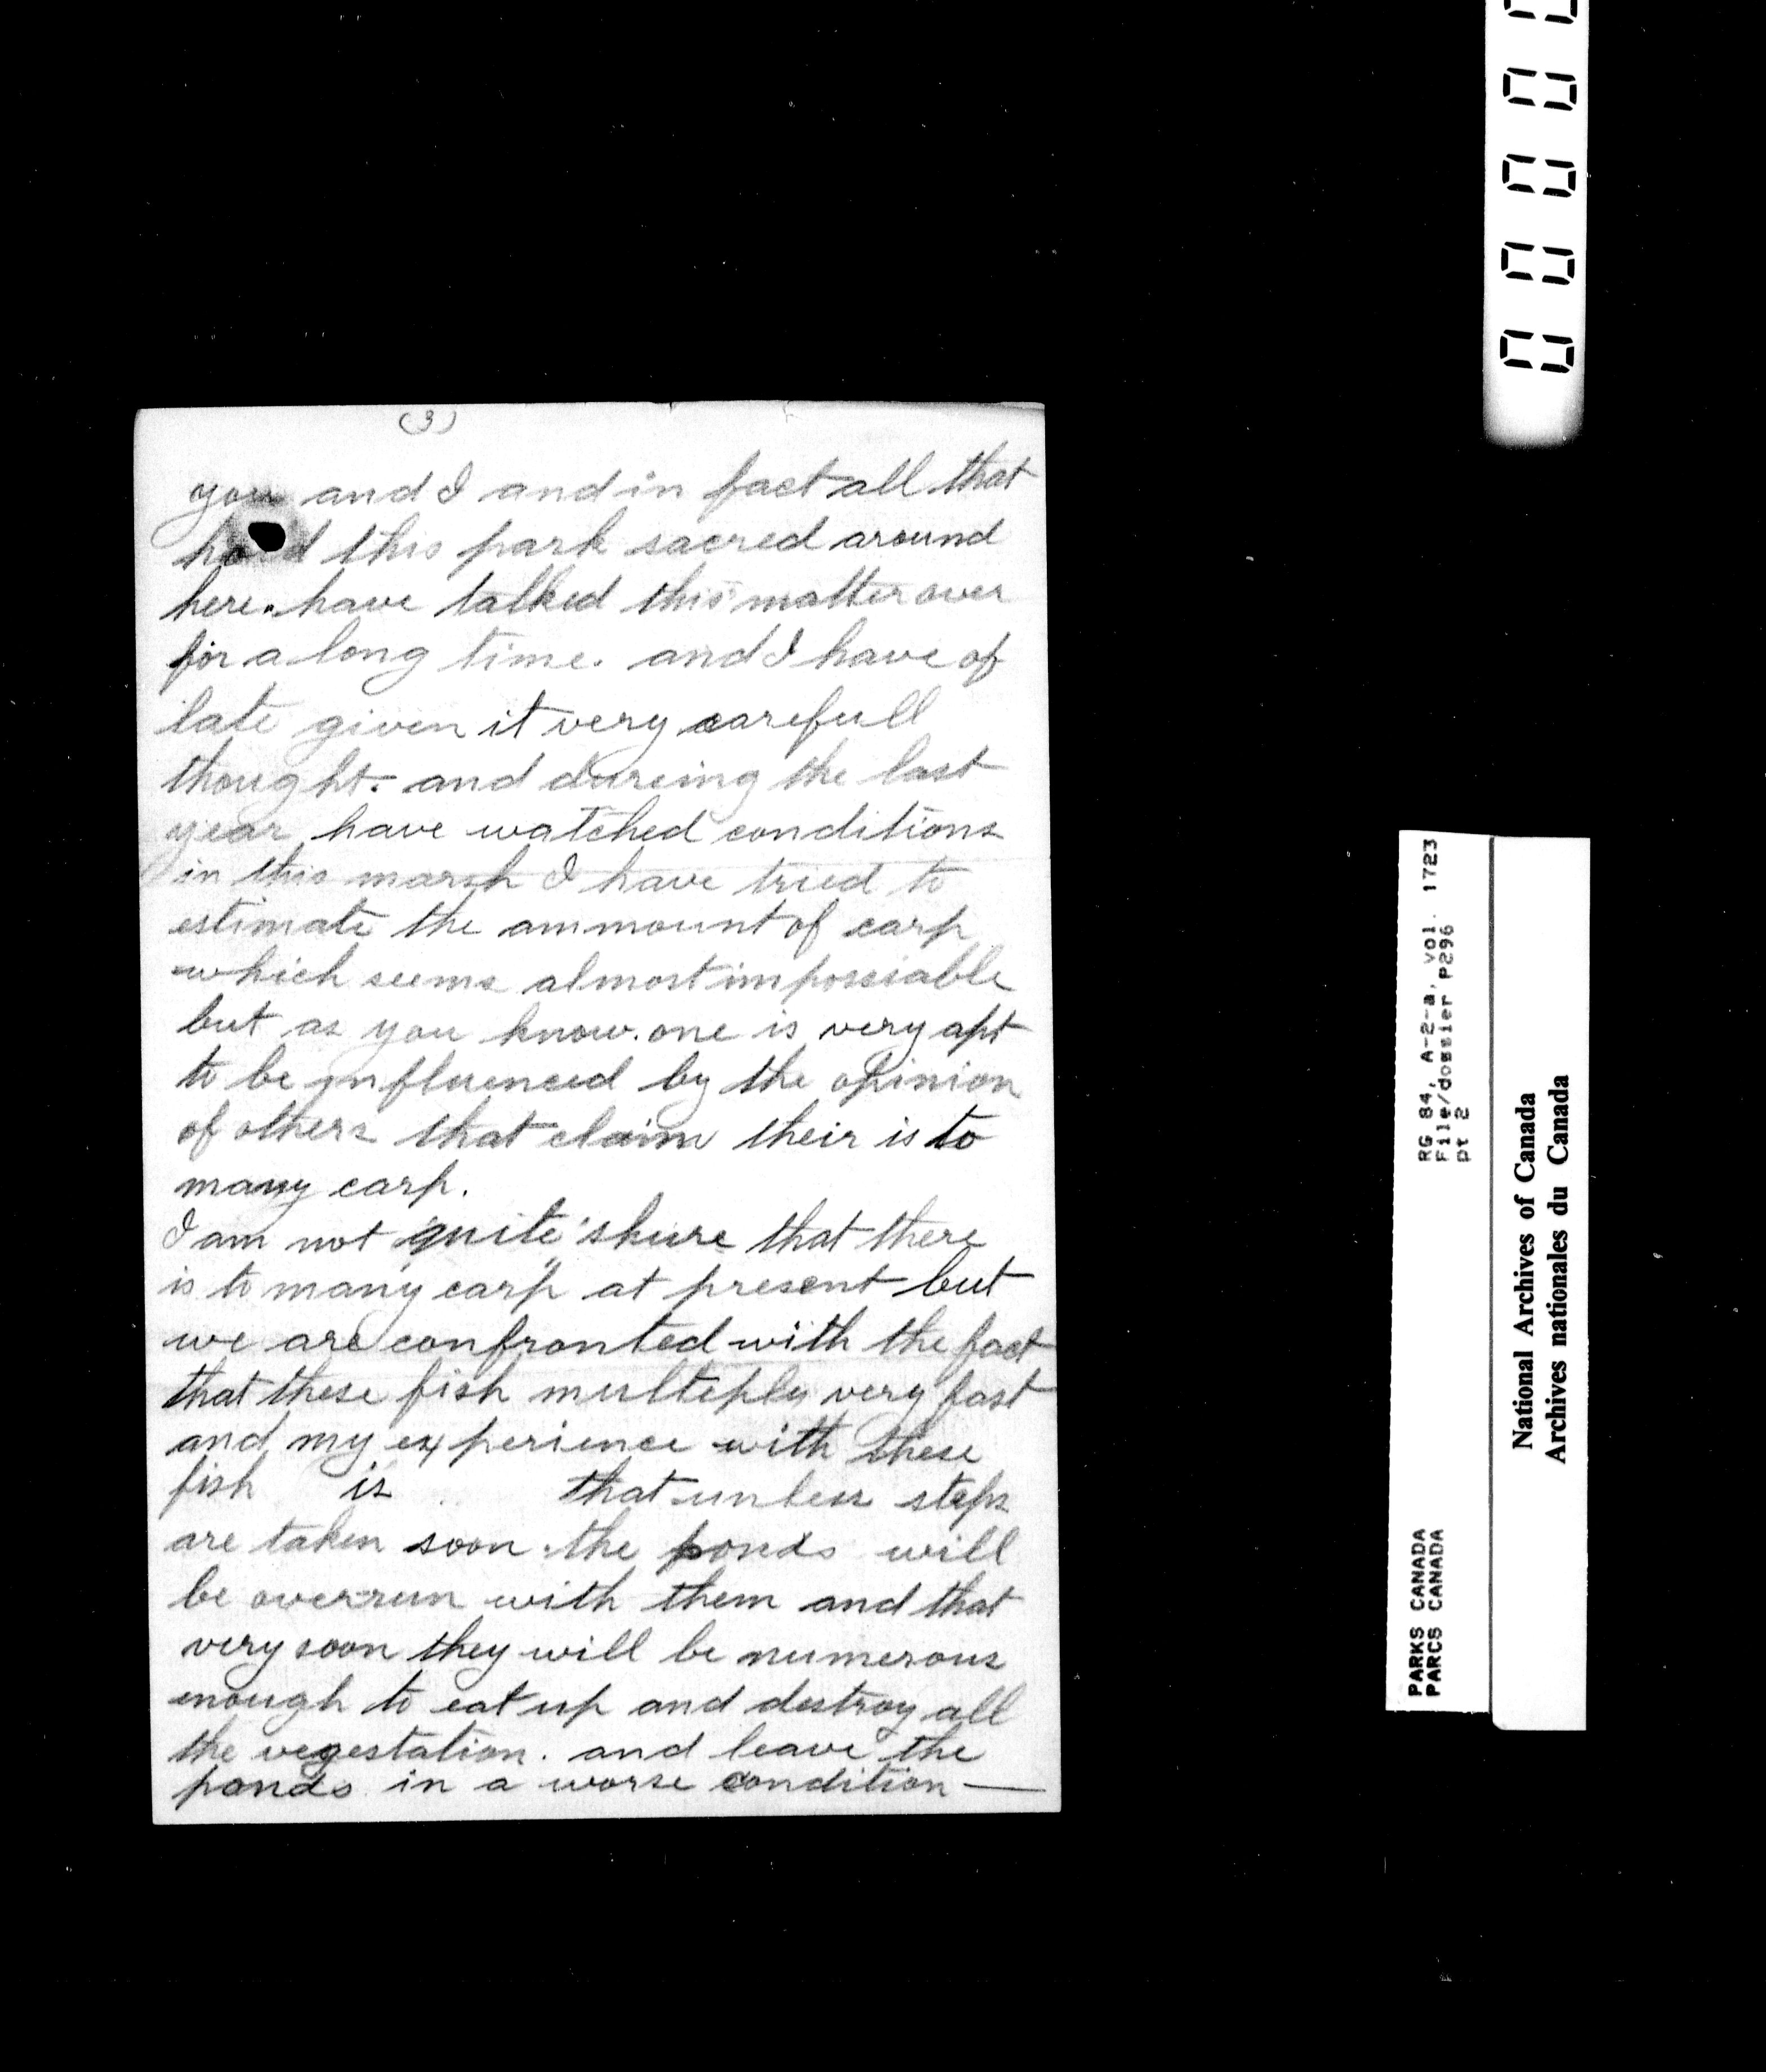 (3)
you and I and in fact all that
hold this park sacred around
here. have talked this matter over
for a long time. and I have of
late given it very carefull
thought. and dureing the last
year have watched conditions
in this marsh I have tried to
estimate the ammount of carp
which seems almost impossiable
but as you know. one is very apt
to be influenced by the opinion
of others that claim their is to
many carp.
I am not "quite" shure that there
is to many "carp" at present but
we are confronted with the fact
that these fish multeply very fast
and my experience with these
fish is that unless steps
are taken soon. the ponds will
be overrun with them and that
very soon they will be numerous
enough to eat up and destroy all
the vegestation. and leave the
ponds in a worse condition —
PARKS CANADA
PARCS CANADA
RG 84, A-2-a, vol. 1723
File/dossier P296
pt 2
National Archives of Canada
Archives nationales du Canada